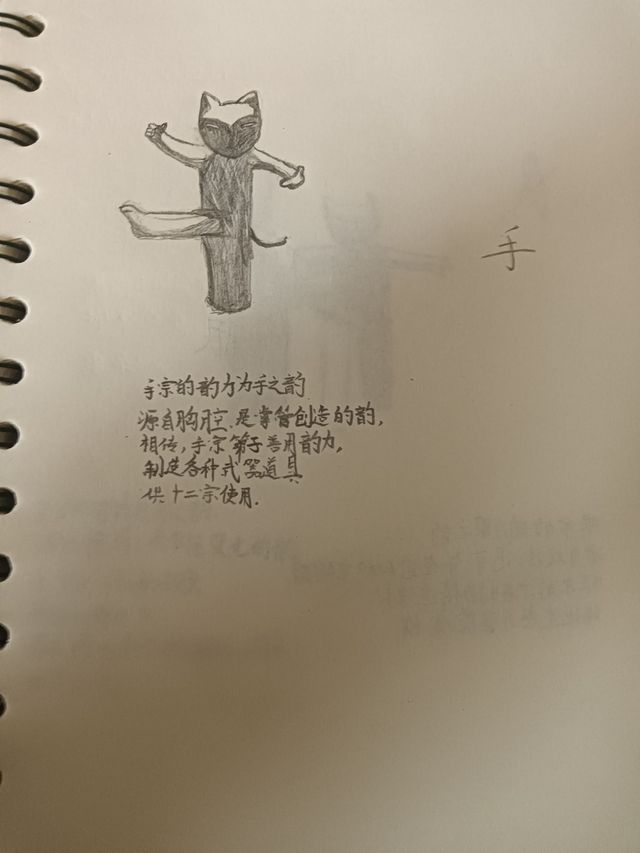 手
手宗的韵力为手之韵
源自胸腔,是掌管创造的韵,
相传,手宗弟子善用韵力,
制造各种式器道具
供十二宗使用.